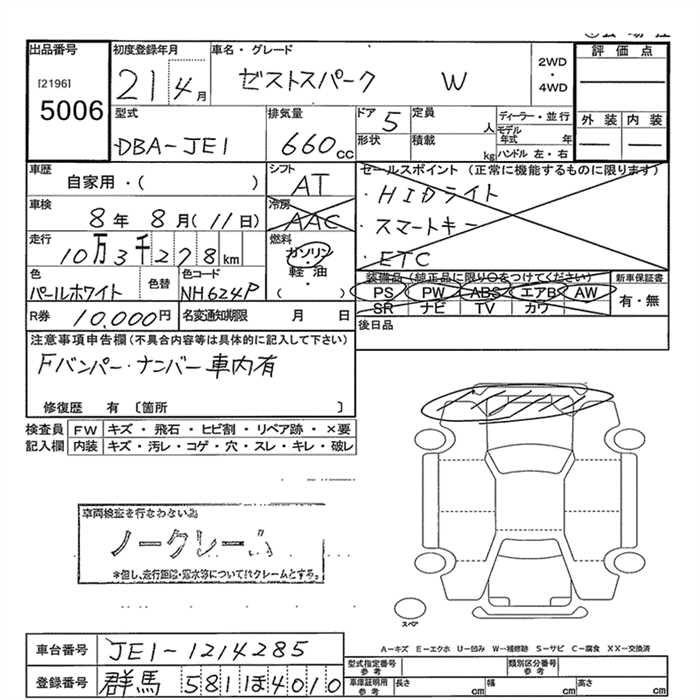 出品番号 初度登録年月 車名・グレード 評価点
[2196] 5006 21 4月 ゼストスパーク W 2WD・4WD
型式 排気量 ドア 5 定員 人 ディーラー・並行 外装 内装
DBA-JE1 660cc 形状 積載 kg モデル年式 年 ハンドル 左・右
車歴 シフト セールスポイント (正常に機能するものに限ります)
自家用・( ) AT ・HIDライト
車検 冷房 ・スマートキー
8年 8月 (11日) AAC ・ETC
走行 燃料
10万3千278km ガソリン・軽油 ( )
色 色替 色コード 装備品(純正品に限り○をつけてください) 新車保証書
パールホワイト NH624P PS PW ABS エアB AW 有・無
SR ナビ TV カワ
R券 10,000円 名変通知期限 月 日
後日品
注意事項申告欄(不具合内容等は具体的に記入して下さい)
Fバンパー・ナンバー車内有
修復歴 有 〔箇所 〕
検査員 FW キズ・飛石・ヒビ割・リペア跡・×要
記入欄 内装 キズ・汚レ・コゲ・穴・スレ・キレ・破レ
車両検査を行なわない為
ノークレーム
*但し、走行距離・冠水等についてはクレームとする。
スペア
A―キズ E―エクボ U―凹み W―補修跡 S―サビ C―腐食 XX―交換済
車台番号 JE1-1214285 型式指定番号 参考 類別区分番号 参考
登録番号 群馬 581 ほ4010 車庫証明用 参考 長さ cm 幅 cm 高さ cm